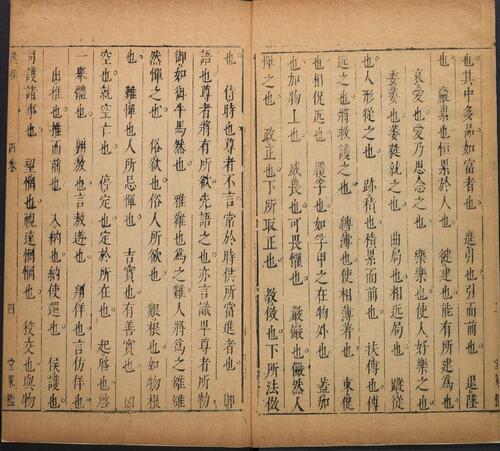 也其中多品如富者也 進引也引而前也 退墜
也 羸累也恒累於人也 健建也能有所建爲也
哀愛也愛乃思念之也 樂樂也使人好樂之也
委萎也萎蕤就之也 曲局也相近局也 蹤從
也人形從之也 跡積也積累而前也 扶傅也傅
近之也將救護之也 縛薄也使相薄著也 束促
也相促近也 覆孚也如孚甲之在物外也 蓋加
也加物上也 威畏也可畏懼也 嚴儼也儼然人
憚之也 政正也下所取正也 教傚也下所法傚
也 侍時也尊者不言常於時供所當進者也 御
語也尊者將有所欲先語之也亦言識卑尊者所勿
御如御牛馬然也 雅雒也爲之難人將爲之雒雒
然憚之也 俗欲也俗人所欲也 艱根也如物根
也 難憚也人所忌憚也 吉實也有善實也 凶
空也就空亡也 停定也定於所在也 起啓也啓
一舉體也 翱敖也言敖遊也 翔佯也言仿佯也
出推也推而前也 入納也納使還也 候護也
司護諸事也 望惘也視遠惘惘也 狡交也與物
四卷 四 堂策檻